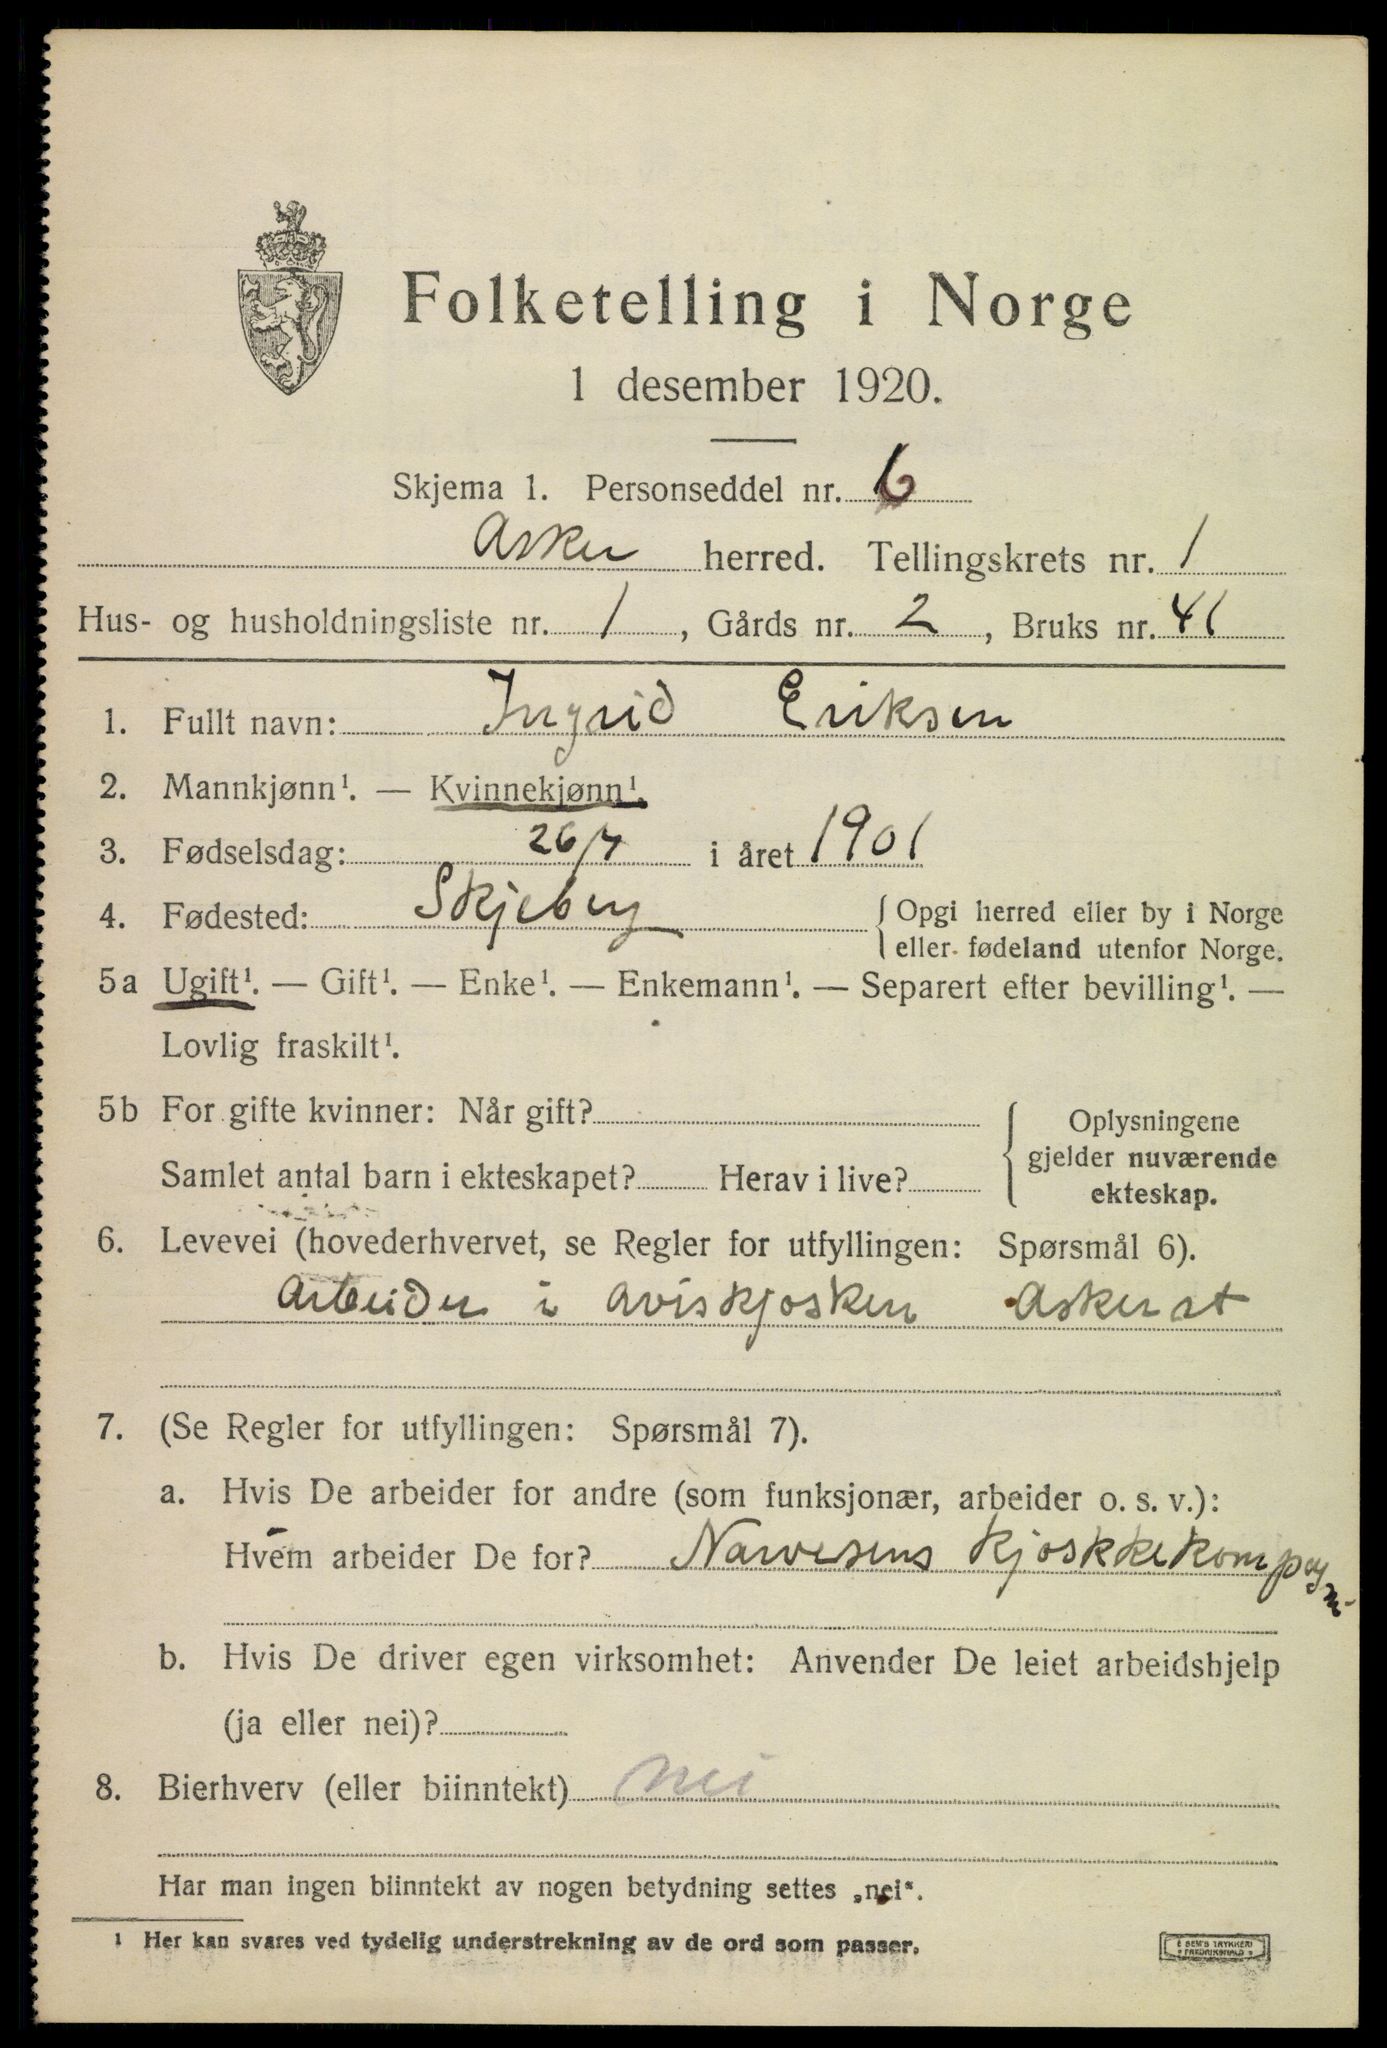 Folketelling i Norge
1 desember 1920.
Skjema 1. Personseddel nr. 6
Asker herred. Tellingskrets nr. 1
Hus- og husholdningsliste nr. 1, Gårds nr. 2, Bruks nr. 41
1. Fullt navn: Ingrid Eriksen
2. Mannkjønn¹. — Kvinnekjønn¹.
3. Fødselsdag: 26/7 i året 1901
4. Fødested: Skjeberg {Opgi herred eller by i Norge
eller fødeland utenfor Norge.
5a Ugift¹. — Gift¹. — Enke¹. — Enkemann¹. — Separert efter bevilling¹. —
Lovlig fraskilt¹.
5b For gifte kvinner: Når gift?
Samlet antal barn i ekteskapet? Herav i live?
Oplysningene
gjelder nuværende
ekteskap.
6. Levevei (hovederhvervet, se Regler for utfyllingen: Spørsmål 6).
Arbeider i aviskjosken Asker st
7. (Se Regler for utfyllingen: Spørsmål 7).
a. Hvis De arbeider for andre (som funksjonær, arbeider o. s. v.):
Hvem arbeider De for? Narvesens Kjoskkekompagni
b. Hvis De driver egen virksomhet: Anvender De leiet arbeidshjelp
(ja eller nei)?
8. Bierhverv (eller biinntekt) nei
Har man ingen biinntekt av nogen betydning settes „nei“.
1 Her kan svares ved tydelig understrekning av de ord som passer.
E SEM'S TRYKKERI
FREDRIKSHALD